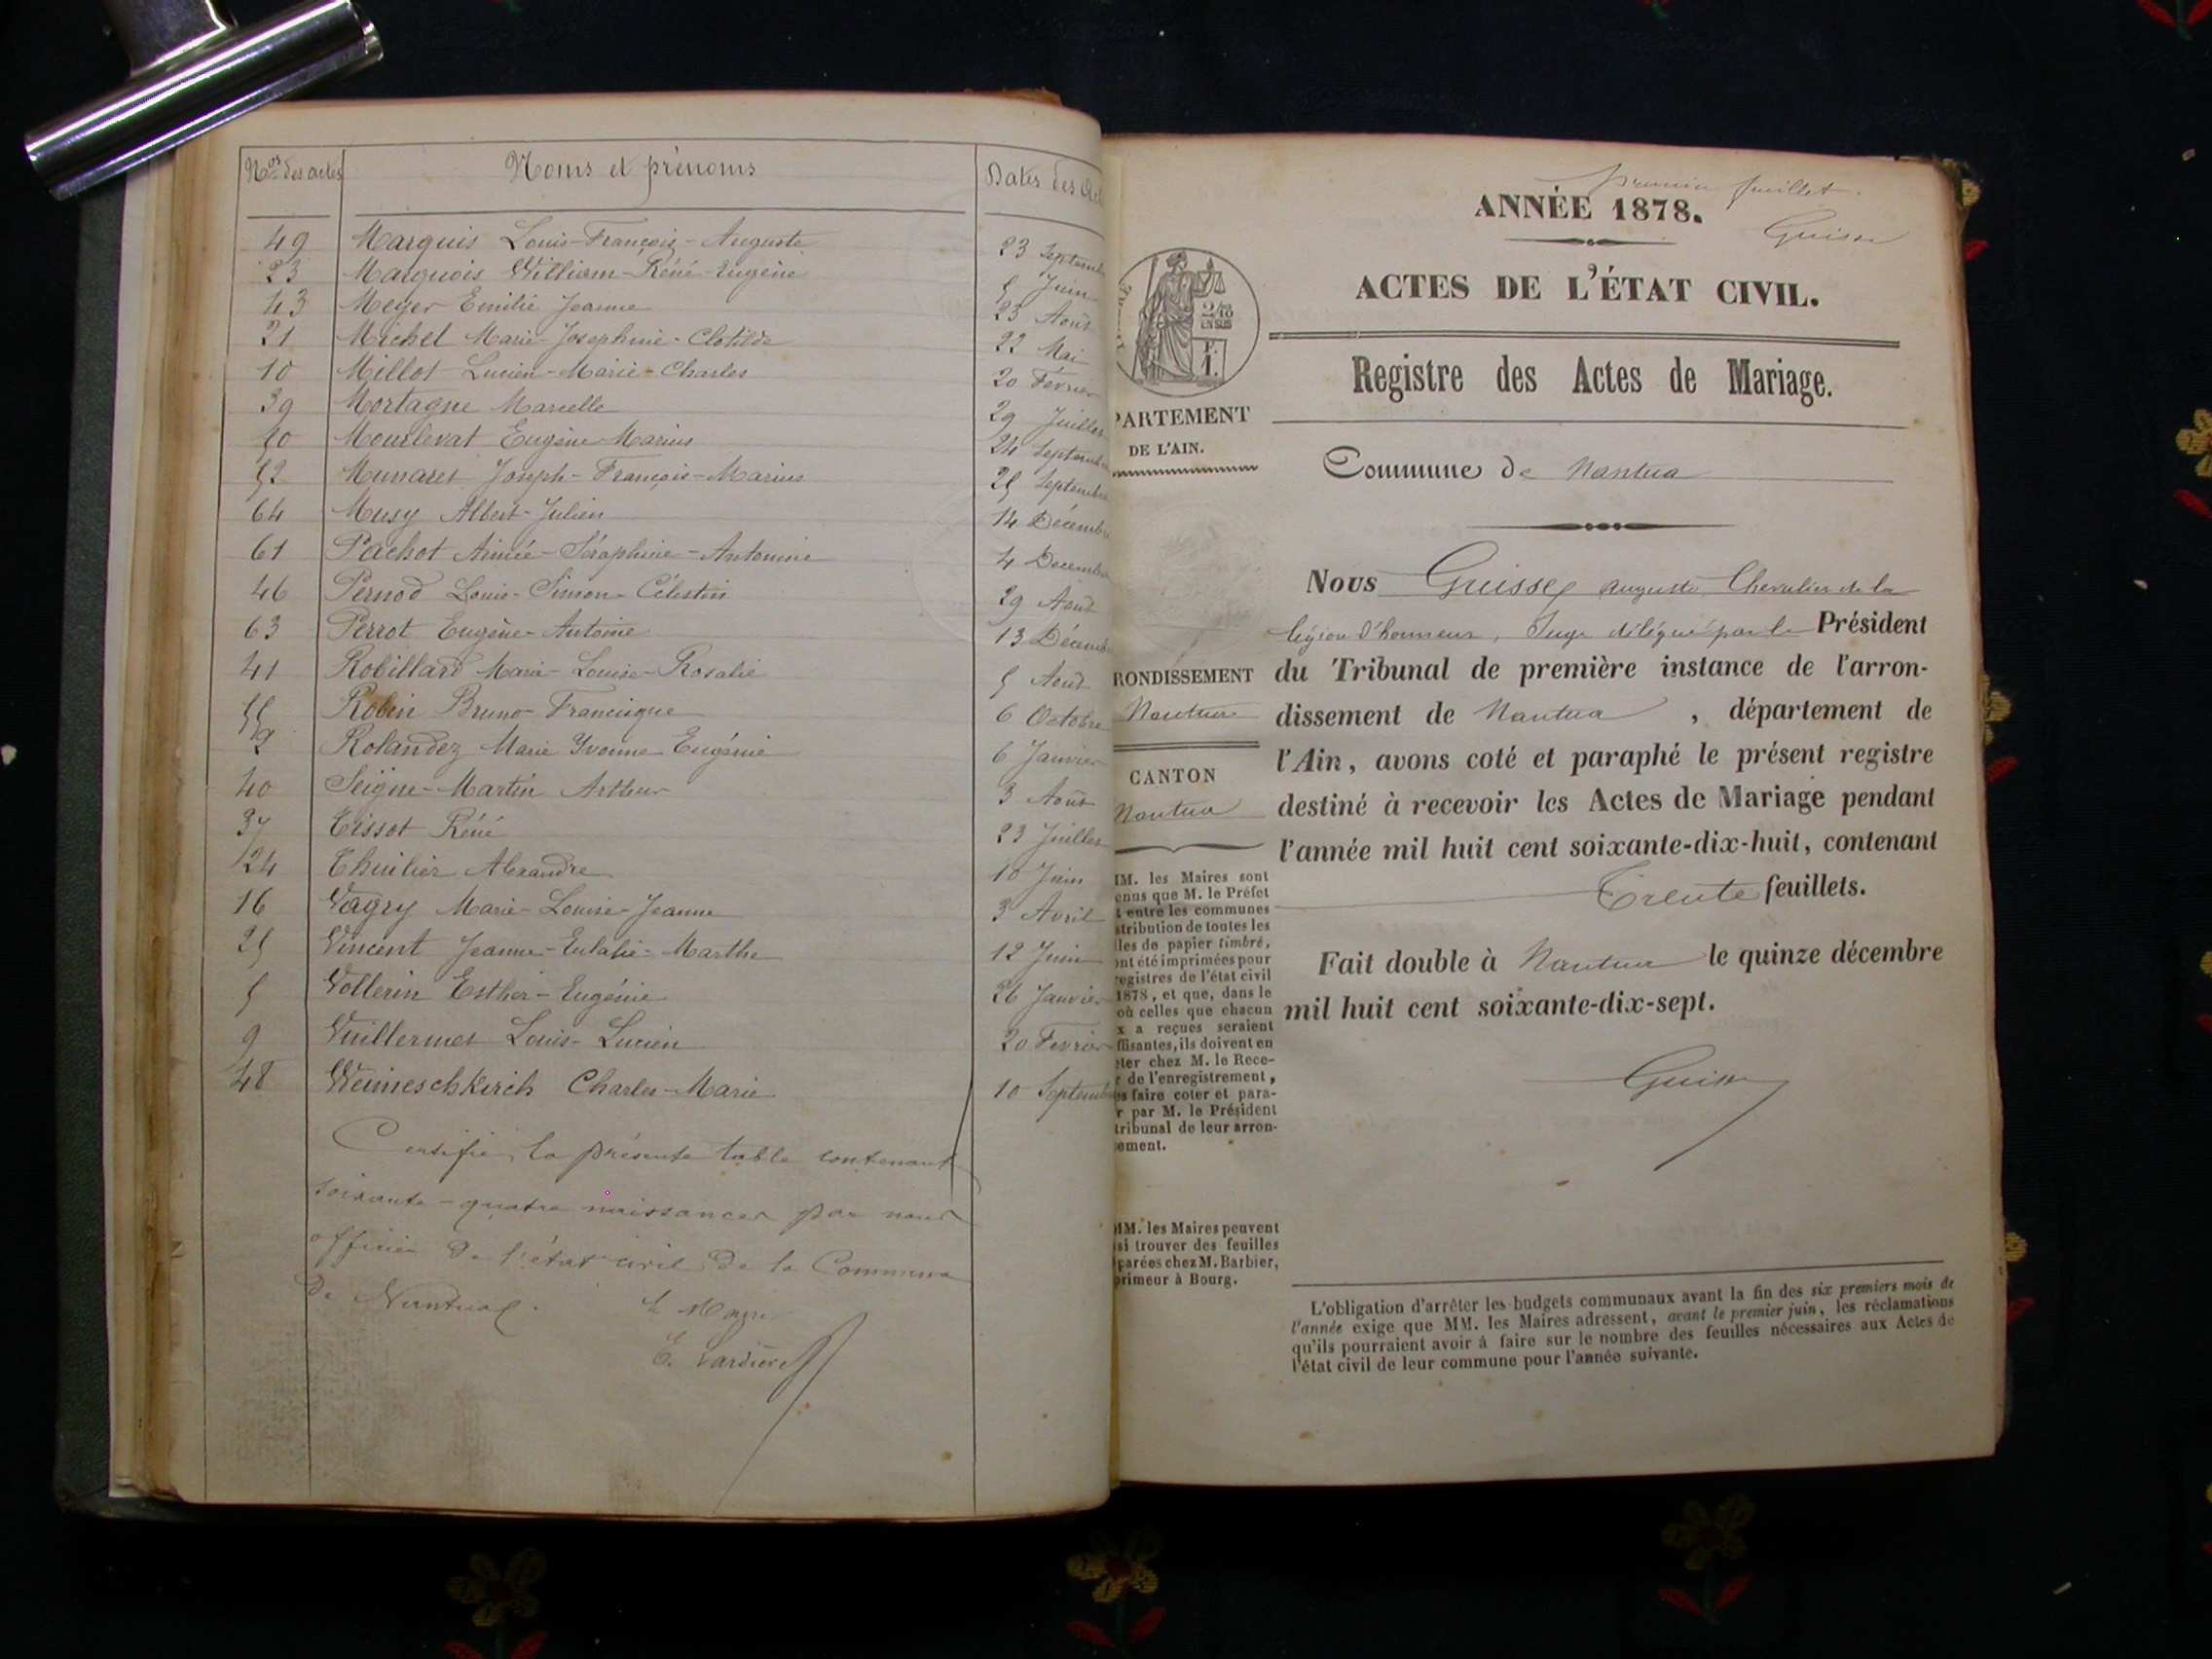 Nos des actes Noms et prénoms Dates des Act
49 Marquis Louis-François-Auguste 23 Septemb
23 Marquois William-Réné-Eugène 5 Juin
43 Meyer Emilie Jeanne 25 Août
21 Michel Marie-Josephine-Clotilde 22 Mai
10 Millot Lucien-Marie-Charles 20 Février
39 Mortagne Marcelle 29 Juillet
50 Mourlevat Eugène-Marius 24 Septembre
52 Munaret Joseph-François-Marius 25 Septembre
64 Musy Albert-Julien 14 Décembre
61 Pachot Aimée-Séraphine-Antonine 4 Decembre
46 Pernod Louis-Simon-Célestin 29 Août
63 Perrot Eugène-Antoine 13 Décemb
41 Robillard Marie-Louise-Rosalie 5 Août
55 Robin Bruno-Francisque 6 Octobre
2 Rolandez Marie Yvonne-Eugénie 6 Janvier
40 Seigne-Martin Arthur 3 Août
37 Tissot Réné 23 Juillet
24 Thuilier Alexandre 10 Juin
16 Vagry Marie-Louise-Jeanne 3 Avril
25 Vincent Jeanne-Eulalie-Marthe 12 Juin
5 Vollerin Esther-Eugénie 26 Janvier
9 Vuillermet Louis-Lucien 20 Fevrier
48 Weimeschkirch Charles-Marie 10 Septemb
Certifié la présente table contenant
soixante-quatre naissances par nous
officier de l'état civil de la Commune
de Nantua.
Le Maire
premier feuillet.
ANNÉE 1878.
Guisse
ACTES DE L'ÉTAT CIVIL.
2/10
EN SUS
F.
1.
Registre des Actes de Mariage.
PARTEMENT
DE L'AIN.
Commune de Nantua
Nous Guisse, Auguste, Chevalier de la
légion d'honneur, Juge délégué par le Président
RONDISSEMENT du Tribunal de première instance de l'arron-
Nantua dissement de Nantua, département de
l'Ain, avons coté et paraphé le présent registre
CANTON
Nantua destiné à recevoir les Actes de Mariage pendant
l'année mil huit cent soixante-dix-huit, contenant
Trente feuillets.
Fait double à Nantua le quinze décembre
mil huit cent soixante-dix-sept.
Guisse
MM. les Maires sont
enus que M. le Préfet
t entre les communes
stribution de toutes les
lles de papier timbré,
ont été imprimées pour
registres de l'état civil
1878, et que, dans le
où celles que chacun
x a reçues seraient
ffisantes, ils doivent en
eter chez M. le Rece-
r de l'enregistrement,
es faire coter et para-
r par M. le Président
tribunal de leur arron-
ement.
MM. les Maires peuvent
si trouver des feuilles
parées chez M. Barbier,
primeur à Bourg.
L'obligation d'arrêter les budgets communaux avant la fin des six premiers mois de
l'année exige que MM. les Maires adressent, avant le premier juin, les réclamations
qu'ils pourraient avoir à faire sur le nombre des feuilles nécessaires aux Actes de
l'état civil de leur commune pour l'année suivante.